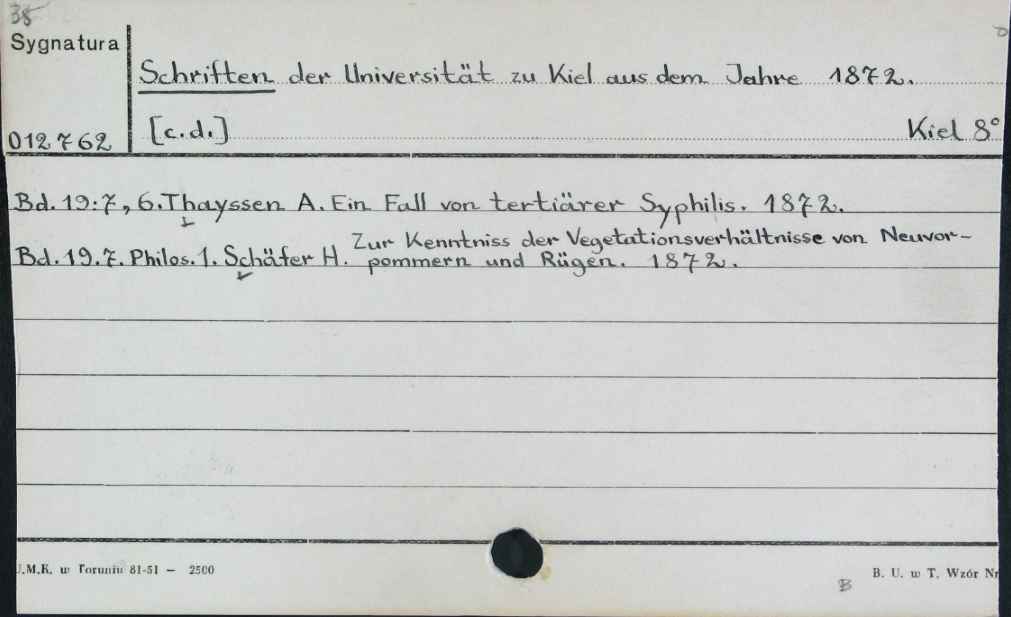 38
Sygnatura
Schriften der Universität zu Kiel aus dem Jahre 1872.
012762
[c.d.]
Kiel 8°
Bd. 19:7, 6. Thayssen A. Ein Fall von tertiärer Syphilis. 1872.
Bd. 19.7. Philos. 1. Schäfer H. Zur Kenntniss der Vegetationsverhältnisse von Neuvor-
pommern und Rügen. 1872.
U.M.K. w Toruniu 81-51 — 2500
B
B. U. w T. Wzór Nr